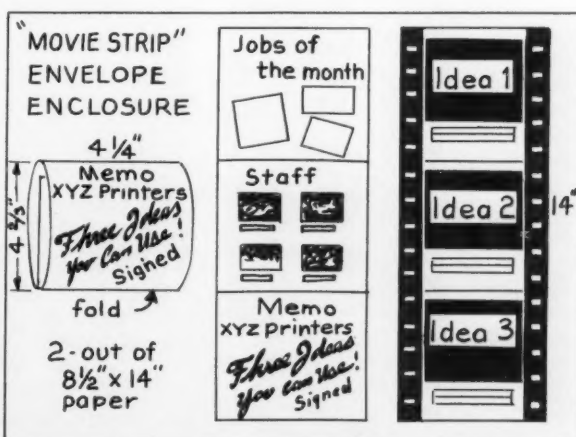 "MOVIE STRIP"
ENVELOPE
ENCLOSURE
4¼"
4⅔"
Memo
XYZ Printers
Three Ideas
you Can Use!
Signed
fold
2-out of
8½"x14"
paper
Jobs of
the month
Staff
Memo
XYZ Printers
Three Ideas
you Can Use!
Signed
Idea 1
Idea 2
14"
Idea 3